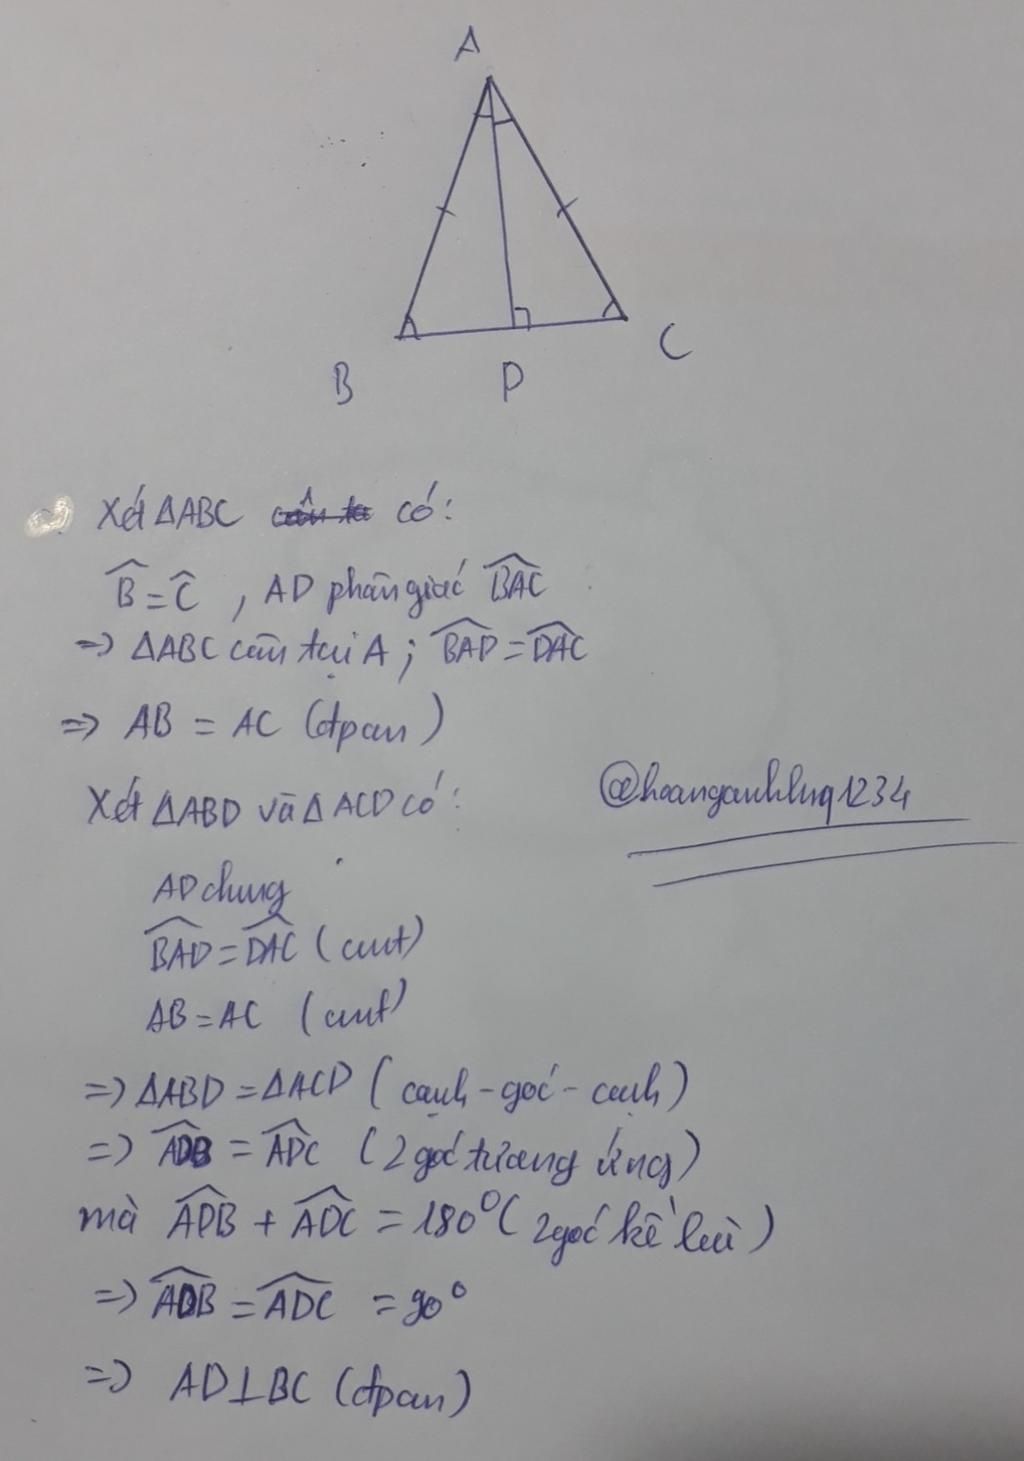 A
B
D
C
Xét ΔABC có:
B̂ = Ĉ , AD phân giác BAC
=> ΔABC cân tại A ; BAD = DAC
=> AB = AC (đpcm)
Xét ΔABD và ΔACD có:
@hoanganhlnq1234
AD chung
BAD = DAC (cmt)
AB = AC (cmt)
=> ΔABD = ΔACD (cạnh - góc - cạnh)
=> ADB = ADC (2 góc tương ứng)
mà ADB + ADC = 180° (2 góc kề bù)
=> ADB = ADC = 90°
=> AD ⊥ BC (đpcm)